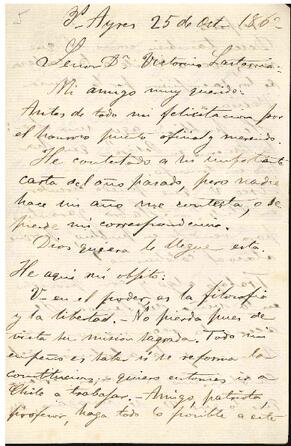 5
Bs. Ayres 25 de Oct. 1862
Señor Dn. Victorino Lastarria.
Mi amigo muy querido:
Antes de todo mi felicitacion por
el honroso puesto oficial y merecido.
He contestado a su importante
carta del año pasado, pero nadie
hace un año me contesta, o se
pierde mi correspondencia.
Dios quiera le llegue esta.
He aqui mi objeto:
V. en el poder, es la filosofia
y la libertad. - No pierda pues de
vista su mision sagrada. Todo mi
empeño es saber si se reforma la
constitucion, y quiero entonces ir a
Chile a trabajar. - Amigo, patriota,
profesor, haga todo lo posible a este